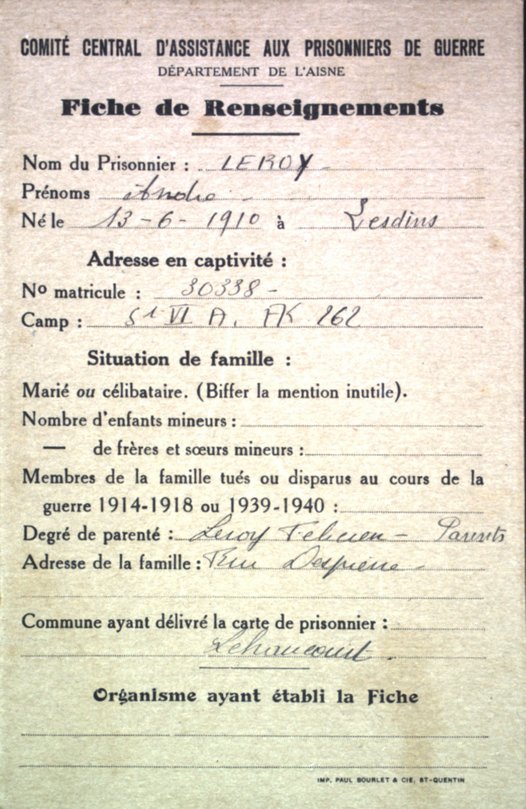 COMITÉ CENTRAL D'ASSISTANCE AUX PRISONNIERS DE GUERRE
DÉPARTEMENT DE L'AISNE
Fiche de Renseignements
Nom du Prisonnier : LEROY
Prénoms André
Né le 13-6-1910 à Lesdins
Adresse en captivité :
No matricule : 30338
Camp : St VI A. AK 262
Situation de famille :
Marié ou célibataire. (Biffer la mention inutile).
Nombre d'enfants mineurs :
— de frères et sœurs mineurs :
Membres de la famille tués ou disparus au cours de la
guerre 1914-1918 ou 1939-1940 :
Degré de parenté : Leroy Felicien - Parents
Adresse de la famille : Rue
Commune ayant délivré la carte de prisonnier :
Lehaucourt.
Organisme ayant établi la Fiche
IMP. PAUL BOURLET & CIE, ST-QUENTIN